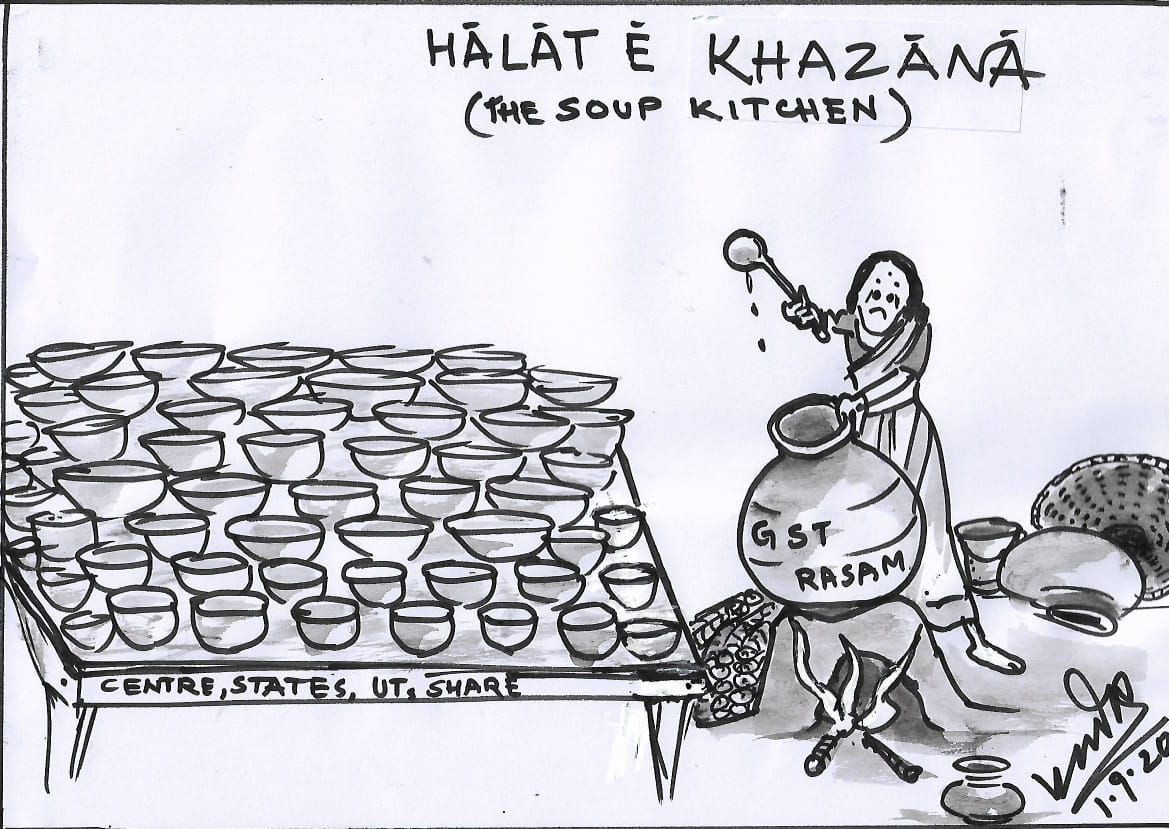 HĀLĀT Ē KHAZĀNĀ
(THE SOUP KITCHEN)
GST
RASAM
CENTRE, STATES, UT. SHARE
1.9.20